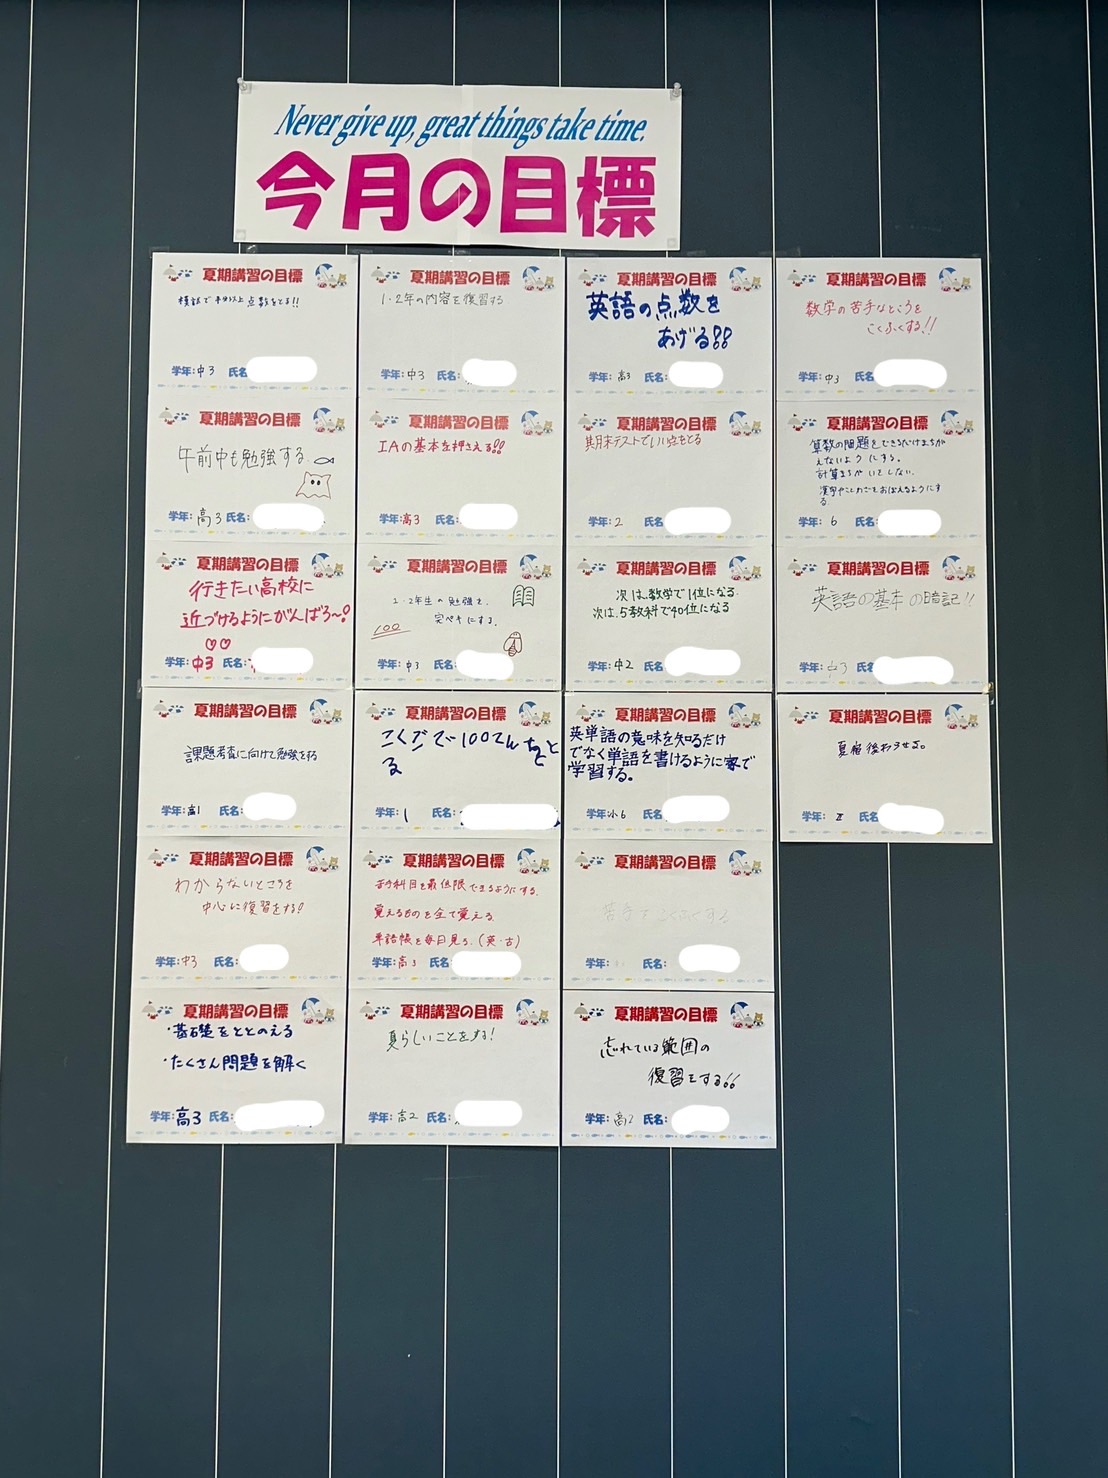 Never give up, great things take time.
今月の目標
夏期講習の目標
模試で半分以上点数をとる!!
学年:中3 氏名
夏期講習の目標
1・2年の内容を復習する
学年:中3 氏名:
夏期講習の目標
英語の点数を
あげる!!
学年:高3 氏名:
夏期講習の目標
数学の苦手なところを
こくふくする!!
学年:中3 氏名:
夏期講習の目標
午前中も勉強する
学年:高3 氏名:
夏期講習の目標
IAの基本を押さえる!!
学年:高3 氏名:
夏期講習の目標
期末テストでいい点をとる
学年:2 氏名:
夏期講習の目標
算数の問題をできるだけまちが
えないようにする。
計算まちがいをしない。
漢字やことわざをおぼえるようにす
る
学年:6 氏名:
夏期講習の目標
行きたい高校に
近づけるようにがんばろ〜!
♡♡
学年:中3 氏名:
夏期講習の目標
1・2年生の勉強を、
完ペキにする。
100
学年:中3 氏名:
夏期講習の目標
次は、数学で1位になる
次は、5教科で40位になる
学年:中2 氏名:
夏期講習の目標
英語の基本の暗記!!
学年:中3 氏名:
夏期講習の目標
課題考査に向けて勉強をする
学年:高1 氏名:
夏期講習の目標
こくごで100てんをと
る
学年:1 氏名:
夏期講習の目標
英単語の意味を知るだけ
でなく単語を書けるように家で
学習する。
学年:小6 氏名:
夏期講習の目標
夏宿終わらせる。
学年: 氏名:
夏期講習の目標
わからないところを
中心に復習をする!
学年:中3 氏名:
夏期講習の目標
苦手科目を最低限できるようにする。
覚えるものを全て覚える
単語帳を毎日見る。(英・古)
学年:高3 氏名:
夏期講習の目標
苦手をこくふくする
学年: 氏名:
夏期講習の目標
・基礎をととのえる
・たくさん問題を解く
学年:高3 氏名:
夏期講習の目標
夏らしいことをする!
学年:高2 氏名:
夏期講習の目標
忘れている範囲の
復習をする!!
学年:高2 氏名: